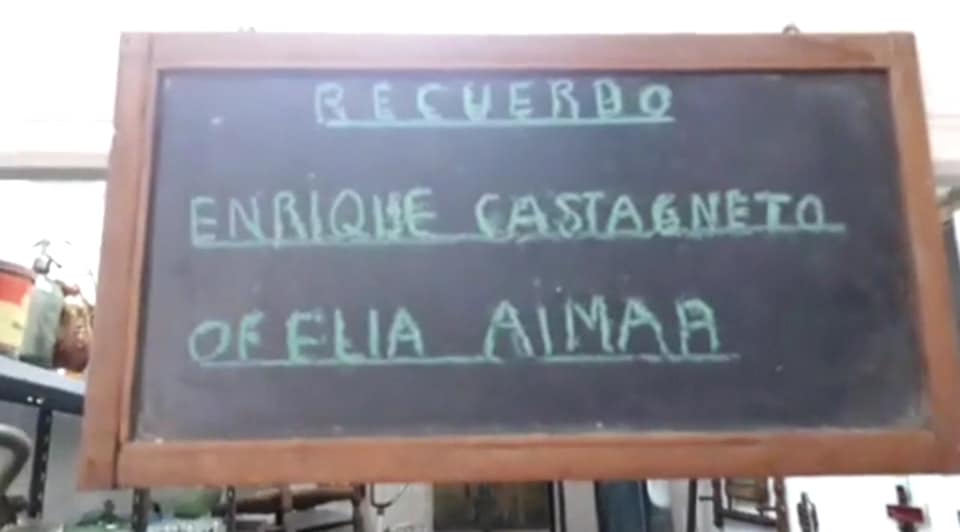 RECUERDO
ENRIQUE CASTAGNETO
OFELIA AIMAR